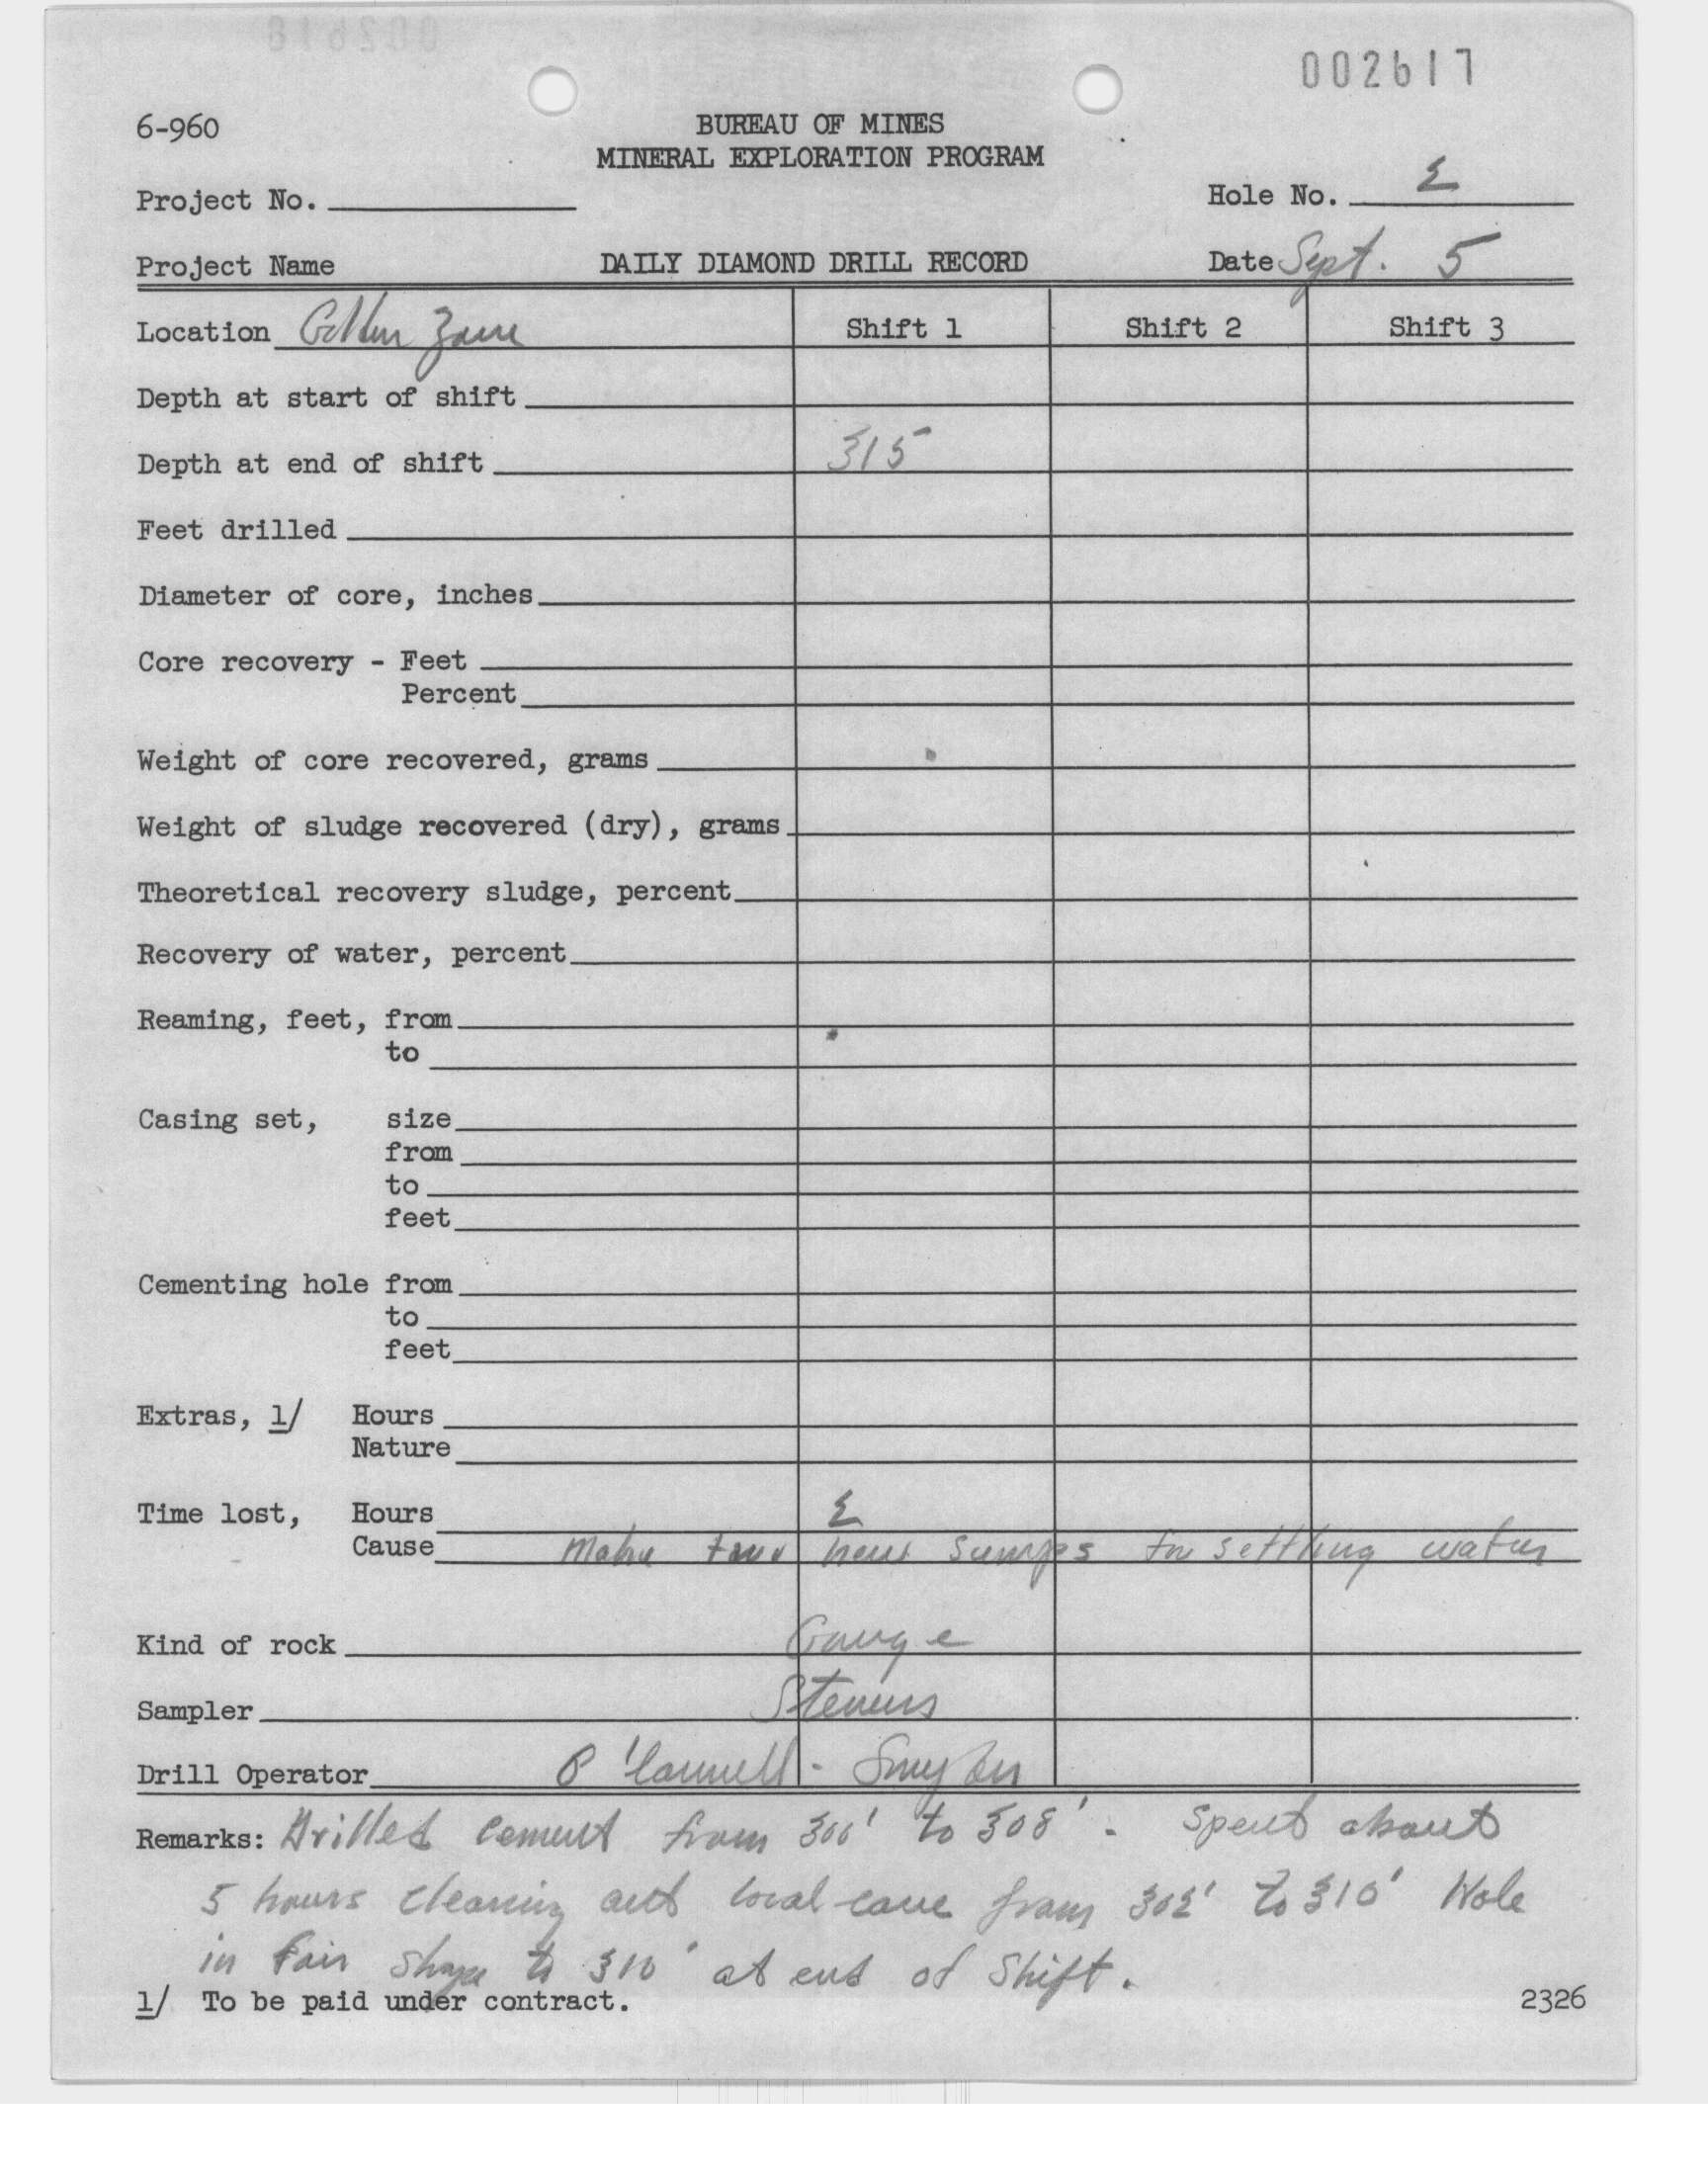 002617
6-960
BUREAU OF MINES
MINERAL EXPLORATION PROGRAM
Project No.
Hole No. 2
Project Name
DAILY DIAMOND DRILL RECORD
Date Sept. 5
Location Golden Zone
Shift 1
Shift 2
Shift 3
Depth at start of shift
Depth at end of shift 315
Feet drilled
Diameter of core, inches
Core recovery - Feet
Percent
Weight of core recovered, grams
Weight of sludge recovered (dry), grams
Theoretical recovery sludge, percent
Recovery of water, percent
Reaming, feet, from
to
Casing set, size
from
to
feet
Cementing hole from
to
feet
Extras, 1/ Hours
Nature
Time lost, Hours 2
Cause Make four new sumps for settling water
Kind of rock Gouge
Sampler Stevens
Drill Operator O'Connell -
Remarks: Drilled cement from 300' to 308'. Spent about
5 hours cleaning out local cave from 302' to 310' Hole
in fair shape to 310' at end of shift.
1/ To be paid under contract.
2326